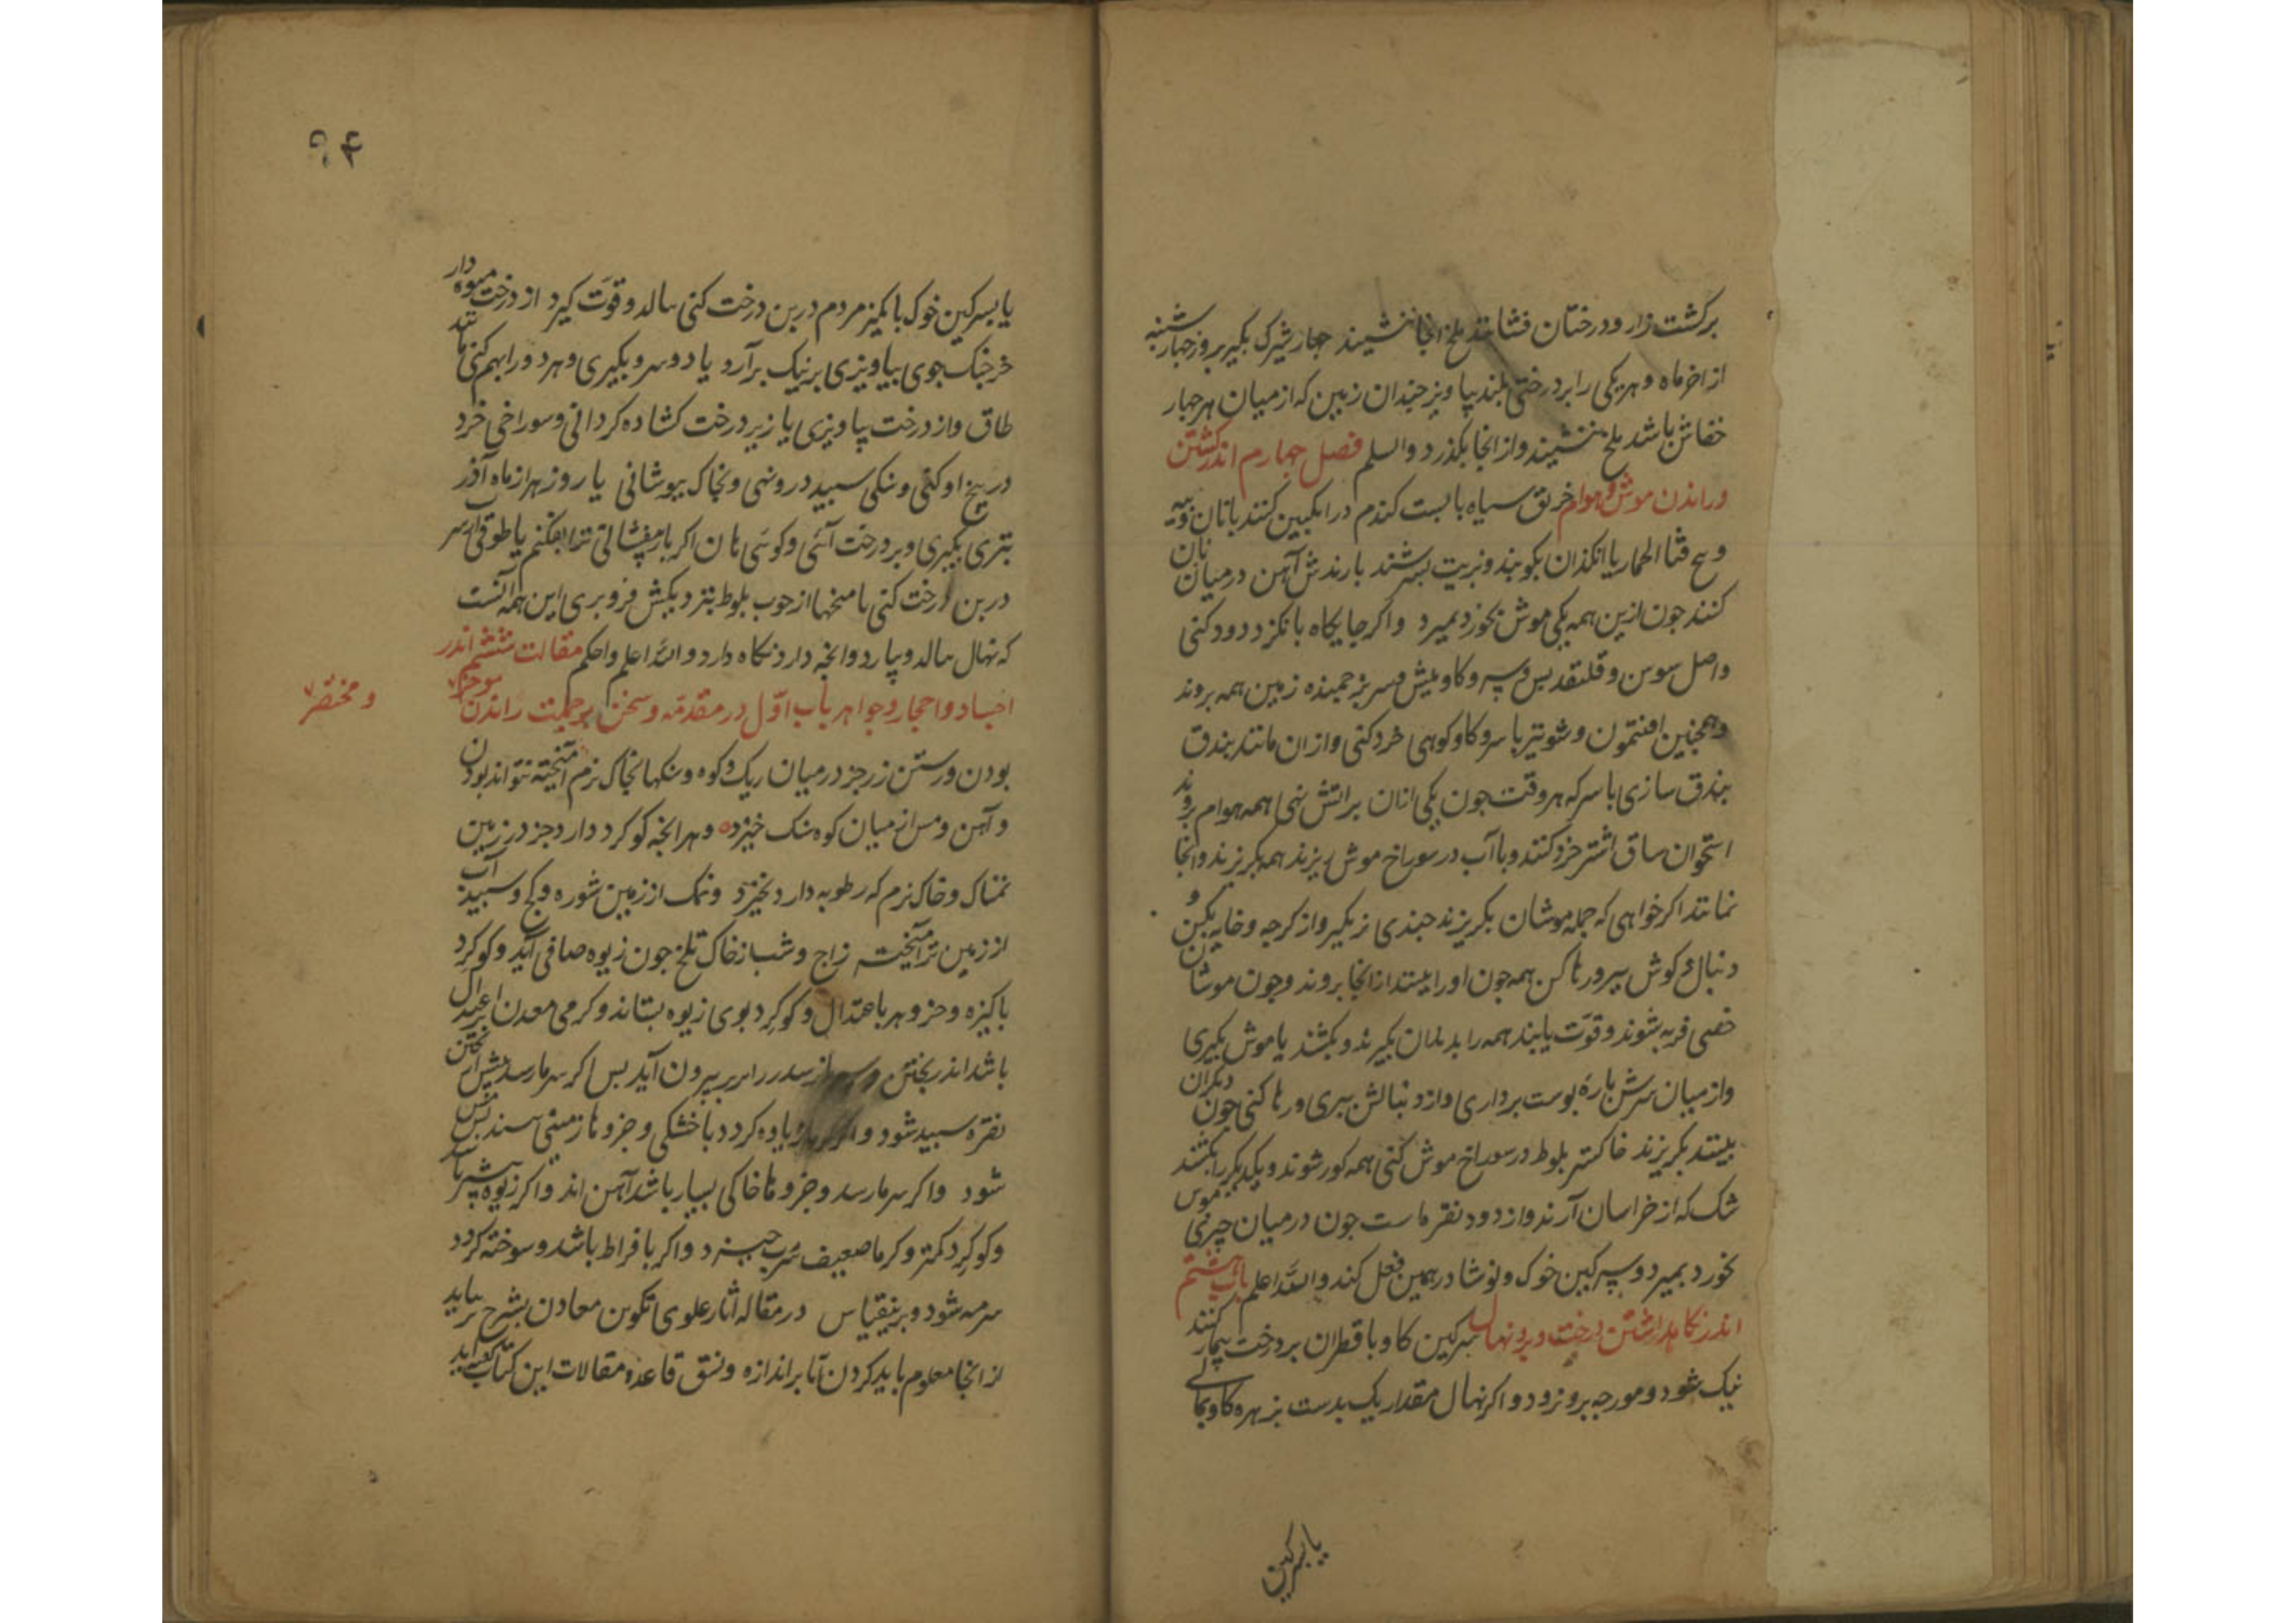 برکشت زار و درختان فشانند ملخ انجا ننشیند جهار شبرک بکیر بروز جهارشنبه
از اخر ماه و هر یکی را بر درختی بلند بیاویز جندان زمین که از میان هر جهار
خفاش باشد ملخ ننشیند و از انجا بکذرد والسلم فصل جهارم اندر کشتن
وراندن موش و هوام خربق سیاه با بست کندم در انکبین کنند با نان
و بیخ قثا الحمار یا انکذان بکوبند و بزیت بسرشند با رندش آهن در میان نان
کنند جون ازین همه یکی موش بخورد بمیرد واکر جایکاه بانکزد دود کنی
واصل سوسن و قلقدیس و پیه و کاومیش و سر بز جمیذه زمین همه بروند
وهمجنین افتیمون و شونیز با سرو کاو کوهی خرد کنی و از ان مانند بندق
بندق سازی با سرکه هر وقت جون یکی ازان بر اتش نهی همه هوام بروند
استخوان ساق اشتر خرد کنند و با آب در سوراخ موش ریزند همه بکریزند و انجا
نمانند اکر خواهی که جمله موشان بکریزند جندی نر بکیر و از کرجه و خایه بکن و
دنبال و کوش ببر و رها کن همه جون او را ببینند از انجا بروند و جون موشان
خصی فربه شوند و قوت یابند همه را بدندان بکیرند و بکشند یا موش بکیری
واز میان سرش باره بوست برداری و از دنبالش ببری و رها کنی جون دیکران
ببینند بکریزند خاکستر بلوط در سوراخ موش کنی همه کور شوند و یکدیکر را بکشند
شک که از خراسان آرند و از دود نقره است جون در میان چیزی موش
بخورد بمیرد و سرکین خوک و نوشادر همین فعل کند والله اعلم باب هشتم
اندر نکاهداشتن درخت و برو نهال سرکین کاو با قطران بر درخت بیمار کنند
نیک شود و مورجه برو نرود و اکر نهال مقدار یک بدست بزهره کاو بمالی
یا بسرکین
۹۴
یا بسرکین خوک با کمیز مردم در بن درخت کنی ببالد و قوت کیرد از درخت میوه دار
خرجنک جوی بیاویزی بر نیک برآرد یا دو سرو بکیری و هر دو را بهم کنی
طاق و از درخت بیاویزی یا زیر درخت کشاده کردانی و سوراخی خرد
در بیخ او کنی و سنکی سبید درو نهی و بخاک ببوشانی یا روز بهر از ماه آذر
تبری بکیری و بر درخت آئی و کوئی هان اکر بار بیفشانی ترا بیفکنم یا طوقی از سر
در بن درخت کنی یا میخها از جوب بلوط بنزدیکش فرو بری این همه آنست
که نهال ببالد و بیارد و انجه دارد نکاه دارد والله اعلم واحکم مقالت ششم اندر
اجساد و احجار و جواهر باب اول در مقدمه و سخن برجهت راندن موجز
و مختصر
بودن و رستن زر جز در میان ریک و کوه و سنکها بخاک نرم آمیخته نتواند بودن
و آهن و مس از میان کوه سنک خیزد و هر انجه کوکرد دارد جز در زمین
نمناک و خاک نرم که رطوبه دارد نخیزد و نمک از زمین شوره و کج و سبیداب
از زمین تر آمیخته زاج و شب از خاک تلخ جون زیوه صافی آید و کوکرد
باکیزه و جزو هر باعتدال و کوکرد بوی زیوه بستاند و کرمی معدن اعتدال
باشد اندر بختن بیرون آید بس اکر سرما رسد بیش از بختن
نقره سبید شود و اکر زیاده کردد با خشکی و جزوها زمینی سند مس
شود واکر سرما رسد و جزوها خاکی بسیار باشد آهن اند واکر زیوه بیشتر باشد
و کوکرد کمتر و کرما ضعیف سرب خیزد واکر بافراط باشد و سوخته کردد
سرمه شود و برینقیاس در مقاله اثار علوی تکوین معادن بشرح تر بیاید
از انجا معلوم باید کردن تا بر اندازه و نسق قاعده مقالات این کتاب آید